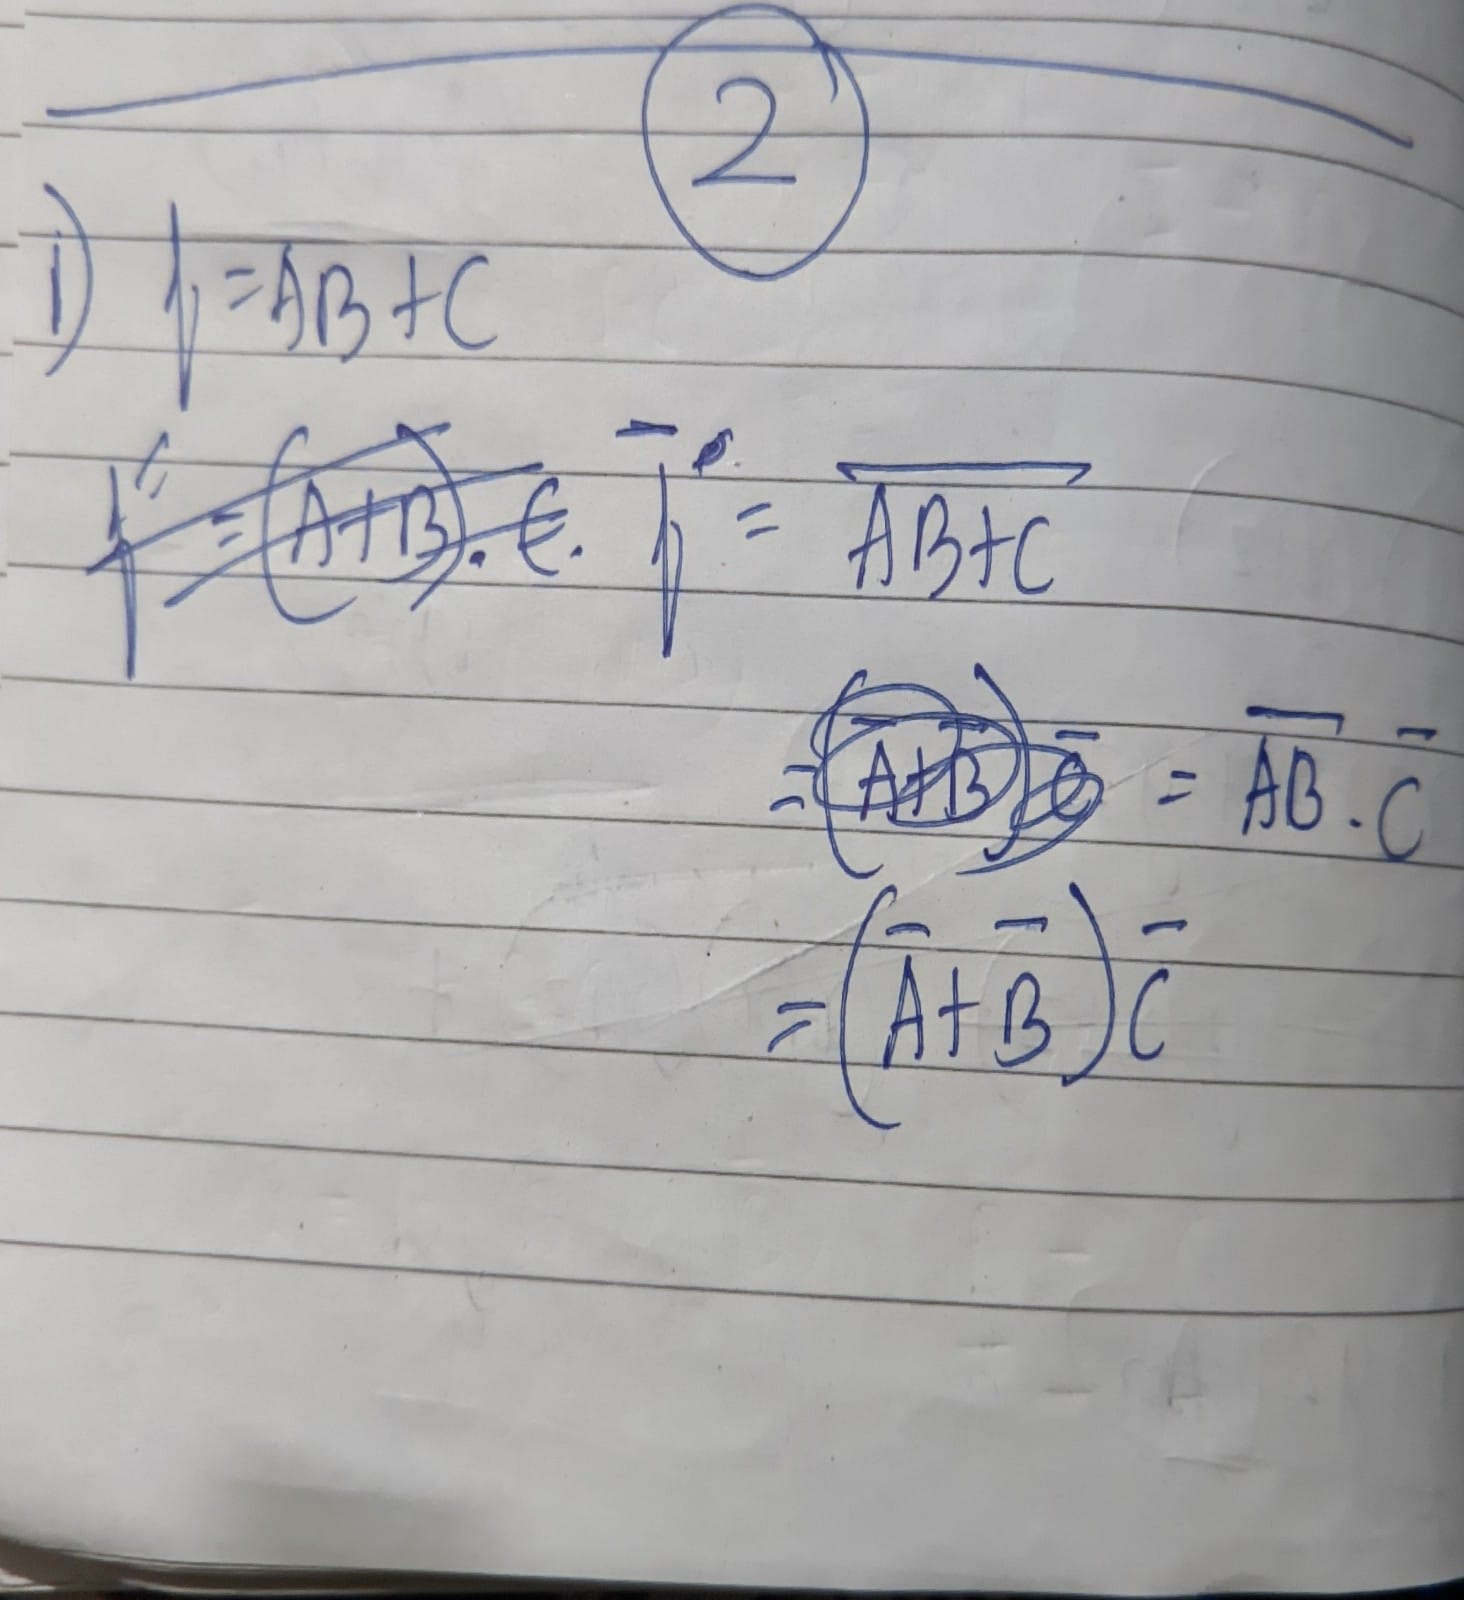 2
1) f = AB + C
f' = (A+B) . C. f̅ = \overline{AB+C}
= (A̅+B̅) C̅ = \overline{AB} . C̅
= (A̅+B̅) C̅